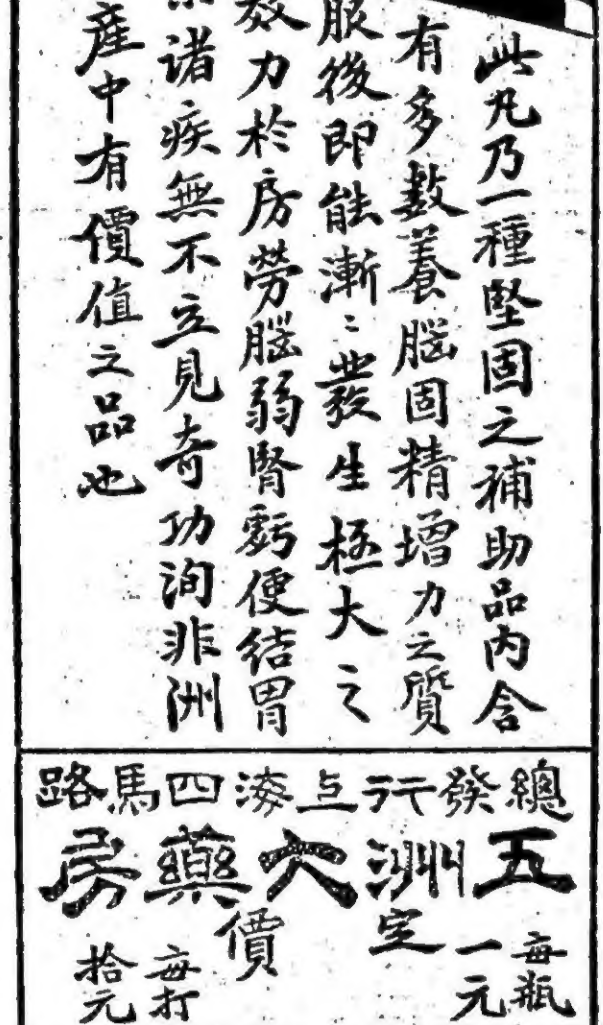 此丸乃一種堅固之補助品內含
有多數養腦固精增力之質
服後即能漸〻發生極大之
效力於房勞腦弱腎虧便結胃
諸疾無不立見奇功洵非洲
產中有價值之品也
總發行上海四馬路
五洲大藥房
定價
每瓶一元
每打拾元